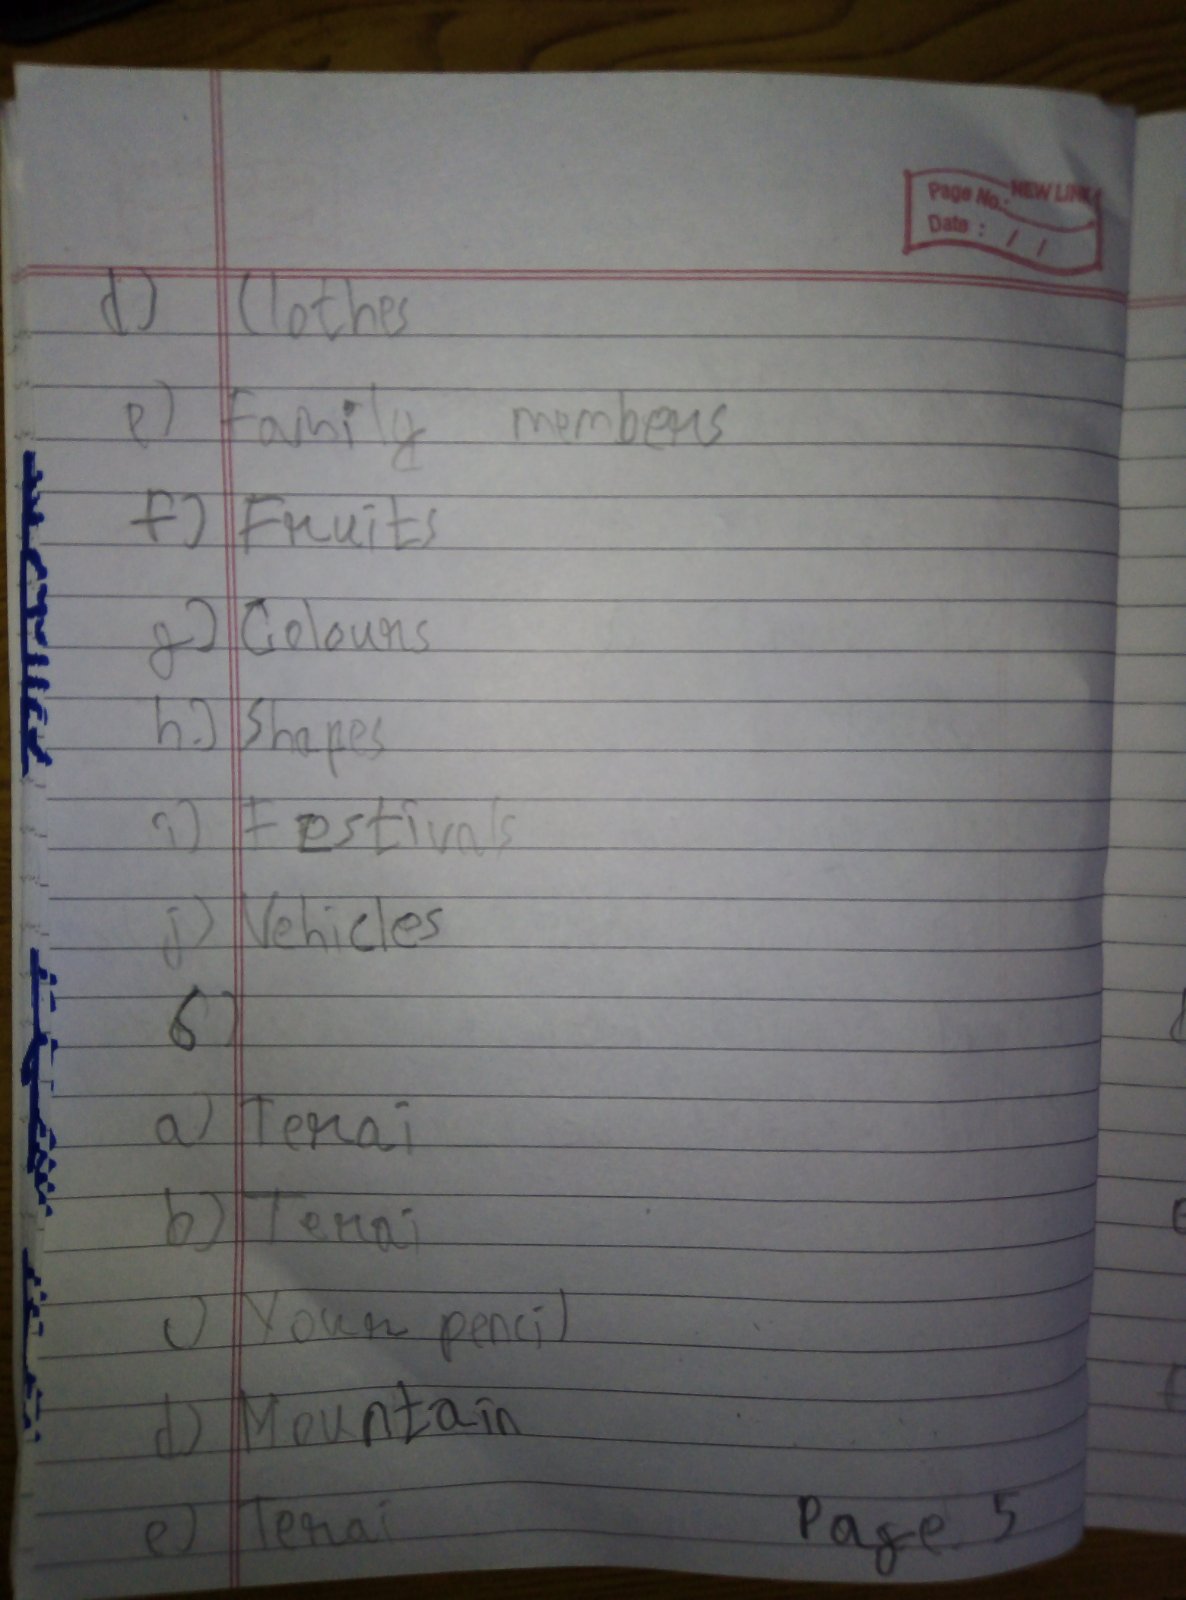 Page No.: NEW LINK
Date : / /
d) Clothes
e) Family members
f) Fruits
g) Colours
h) Shapes
i) Festivals
j) Vehicles
6)
a) Terai
b) Terai
c) Your pencil
d) Mountain
e) Terai
Page 5